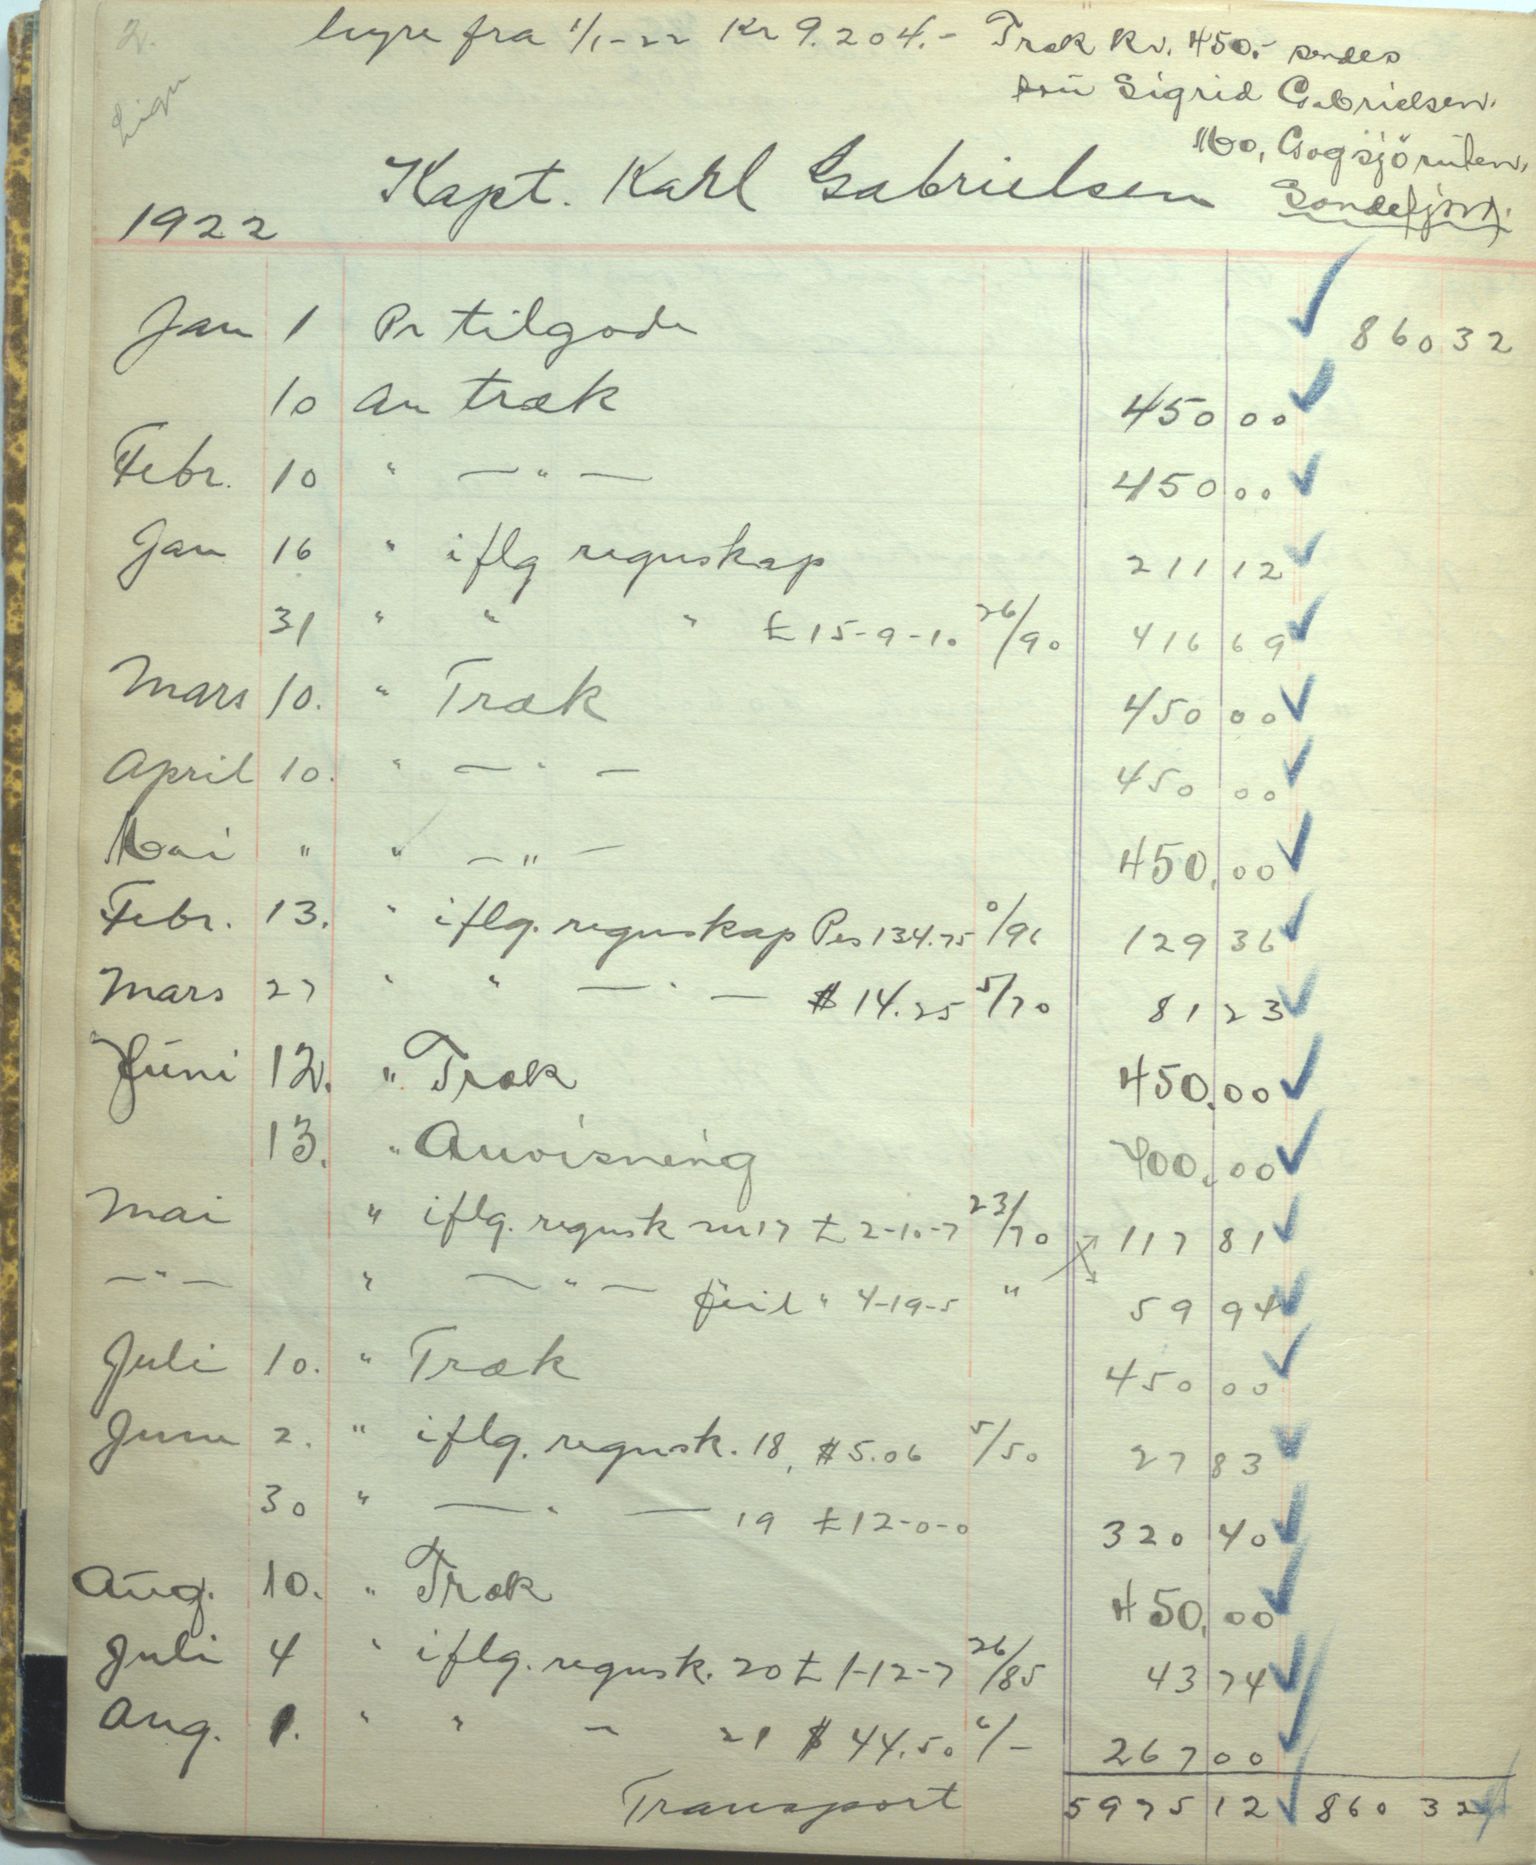 2.
hyre fra 1/1-22 Kr 9.204.- Træk Kr. 450.- sendes
Sigrid Gabrielsen.
Mo, Gogsjöruten,
Sandefjord.
Kapt. Karl Gabrielsen
1922
Jan 1 Pr tilgode 860 32
10 An træk 450 00
Febr. 10 " — " — 450 00
Jan 16 " iflg regnskap 211 12
31 " " " £ 15-9-10 26/90 416 69
Mars 10. " Træk 450 00
April 10. " — " — 450 00
Mai " " — " — 450.00
Febr. 13. " iflg. regnskap Pes 134.75 0/96 129 36
Mars 27 " " — " — $ 14.25 5/70 81 23
Juni 12. " Træk 450.00
13. " Anvisning 400.00
Mai " iflg. regnsk nr 17 £ 2-10-7 23/70 117 81
— " — " — " — feil " 4-19-5 " 59 94
Juli 10. " Træk 450 00
Juni 2. " iflg. regnsk. 18, $ 5.06 5/50 27 83
30 " — " — 19 £ 12-0-0 320 40
Aug. 10. " Træk 450.00
Juli 4 " iflg. regnsk. 20 £ 1-12-7 26/85 43 74
Aug. 1. " " — 21 $ 44.50 6/- 267 00
Transport 5975 12 860 32